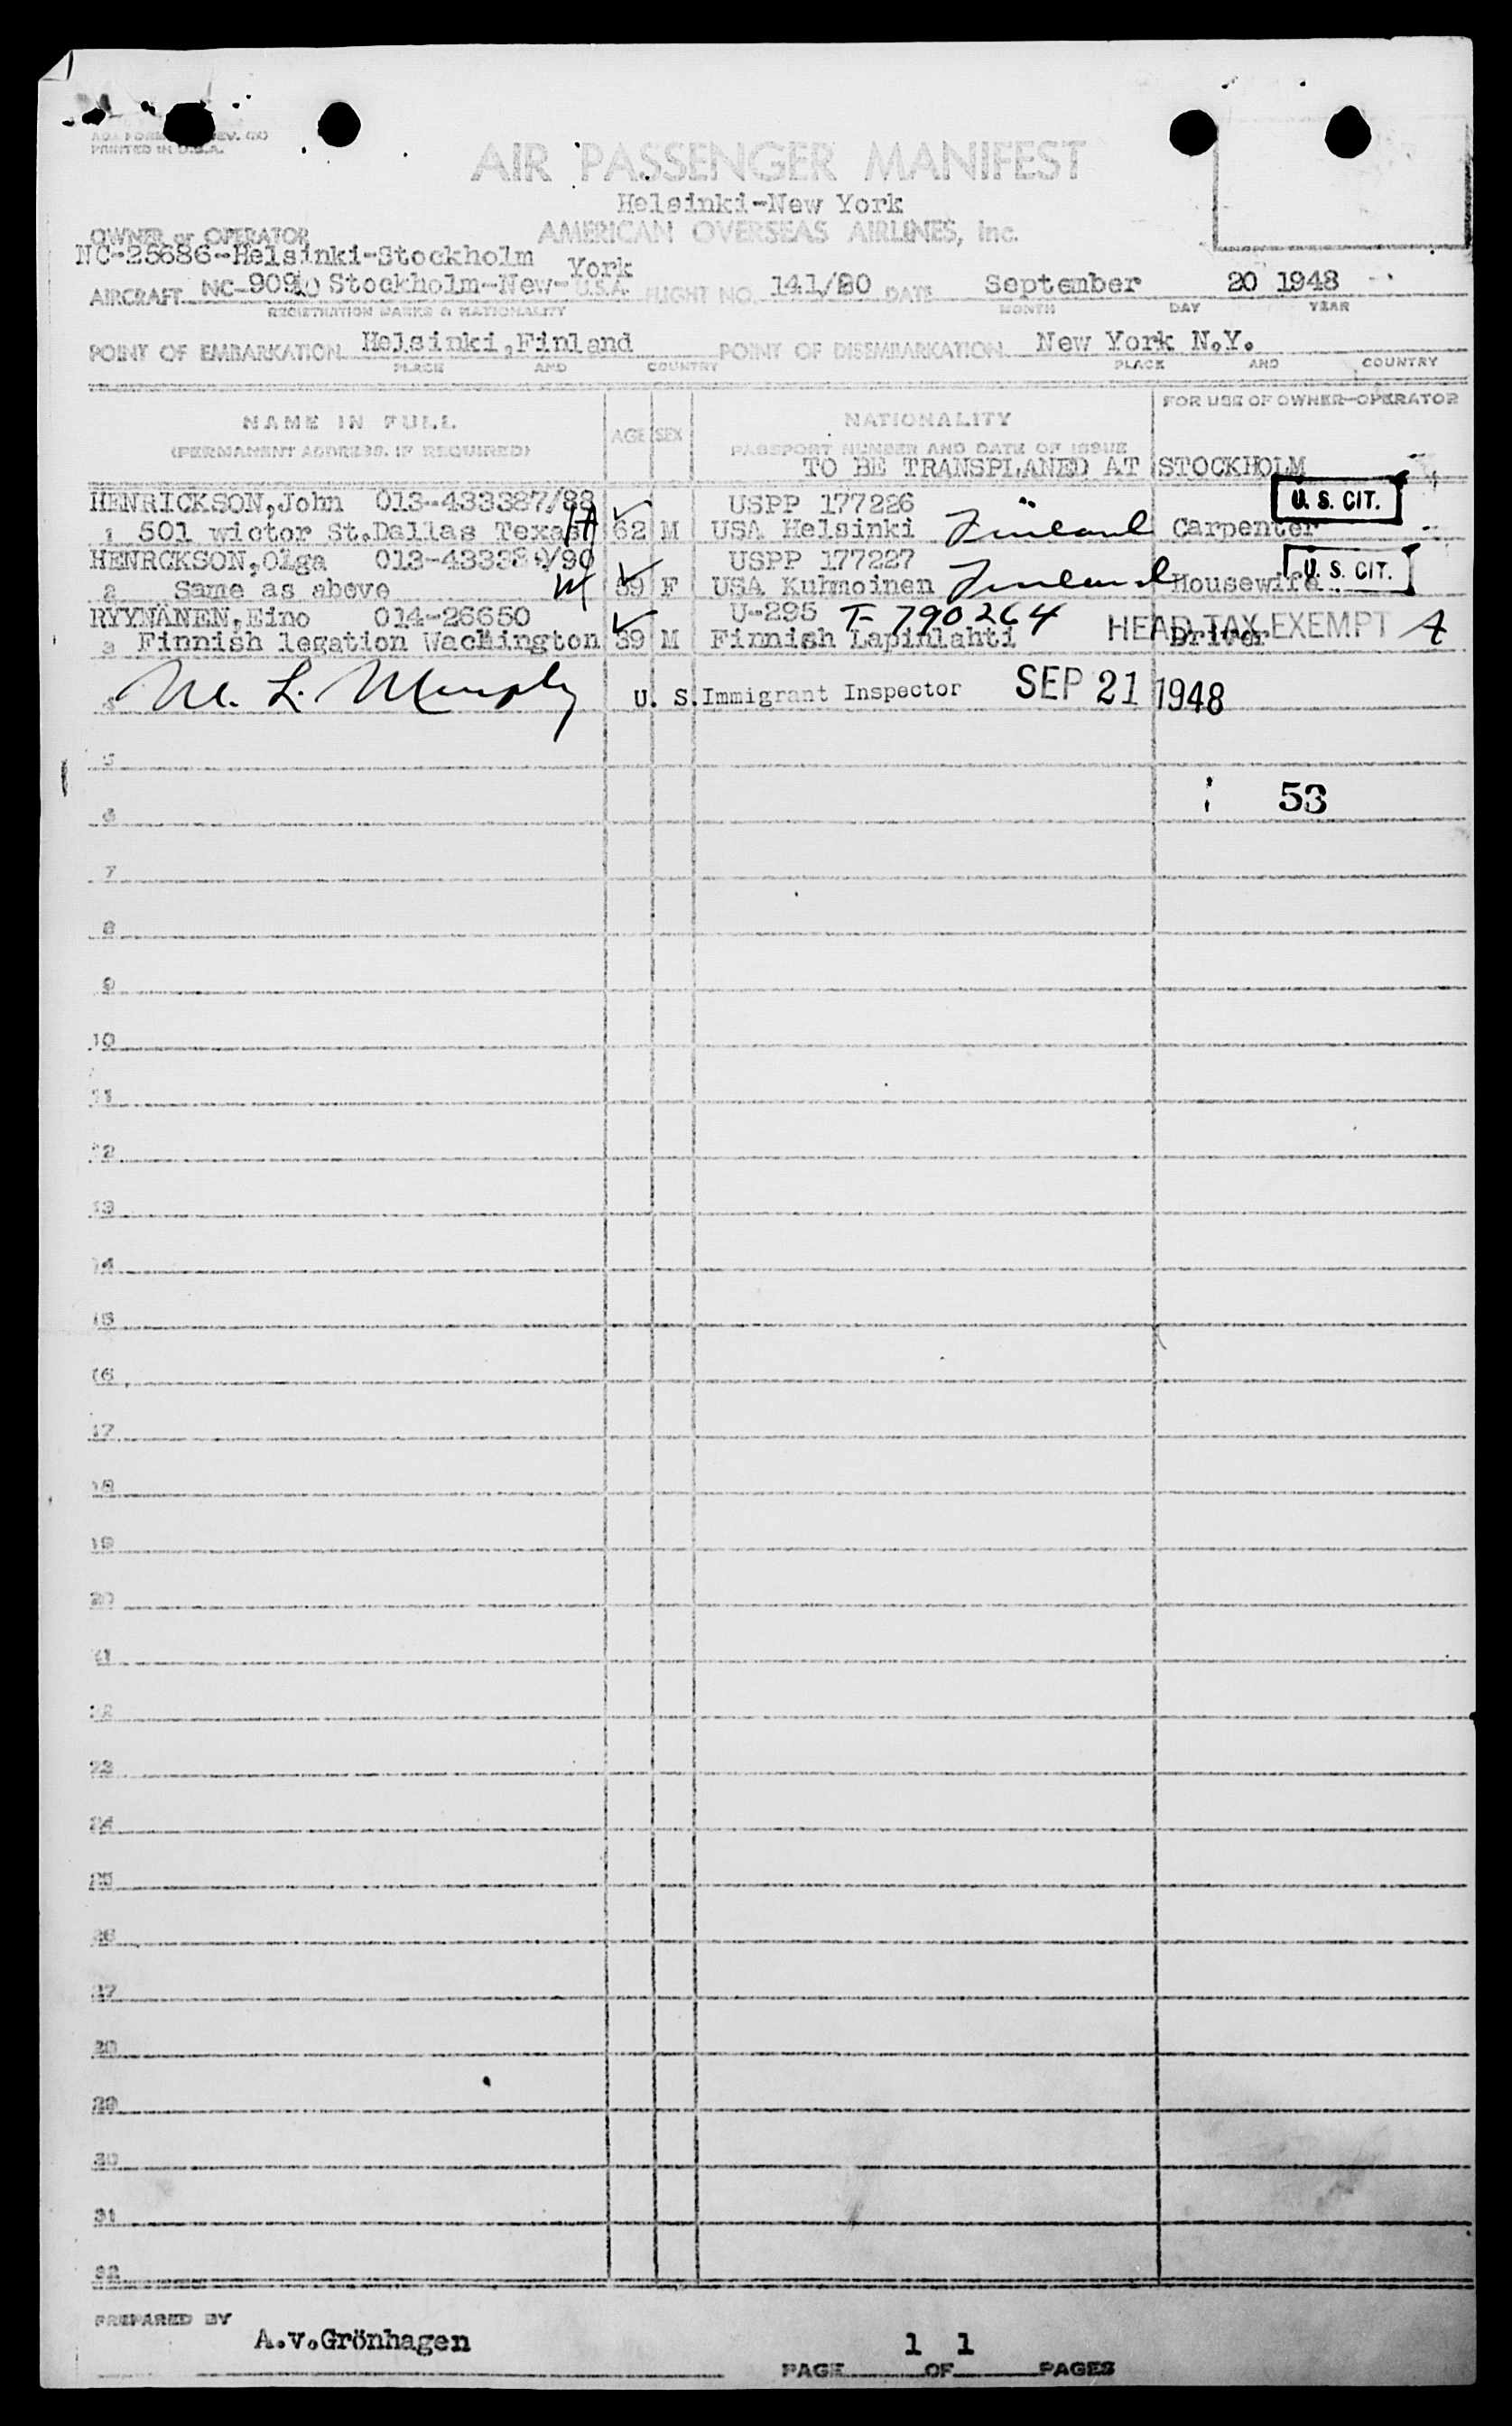 PRINTED IN U.S.A.
AIR PASSENGER MANIFEST
Helsinki-New York
OWNER or OPERATOR AMERICAN OVERSEAS AIRLINES, Inc.
NC-25686-Helsinki-Stockholm
York
AIRCRAFT NC-90910 Stockholm-New- U.S.A. FLIGHT NO. 141/20 DATE September 20 1948
REGISTRATION MARKS & NATIONALITY MONTH DAY YEAR
POINT OF EMBARKATION Helsinki,Finland POINT OF DISEMBARKATION New York N.Y.
PLACE AND COUNTRY PLACE AND COUNTRY
NAME IN FULL AGE SEX NATIONALITY FOR USE OF OWNER-OPERATOR
(PERMANENT ADDRESS, IF REQUIRED) PASSPORT NUMBER AND DATE OF ISSUE
TO BE TRANSPLANED AT STOCKHOLM
HENRICKSON,John 013-433387/88 USPP 177226 U. S. CIT.
1 501 wictor St.Dallas Texas 62 M USA Helsinki Finland Carpenter
HENRCKSON,Olga 013-433389/90 USPP 177227 U. S. CIT.
2 Same as above 59 F USA Kuhmoinen Finland Housewife
RYYNÄNEN,Eino 014-26650 U-295 T-790264 HEAD TAX EXEMPT A
3 Finnish legation Wachington 39 M Finnish Lapinlahti Driver
4 M. L. Murphy U. S. Immigrant Inspector SEP 21 1948
5
53
6
7
8
9
10
11
12
13
14
15
16
17
18
19
20
21
22
23
24
25
26
27
28
29
30
31
32
PREPARED BY
A.v.Grönhagen
PAGE 1 OF 1 PAGES